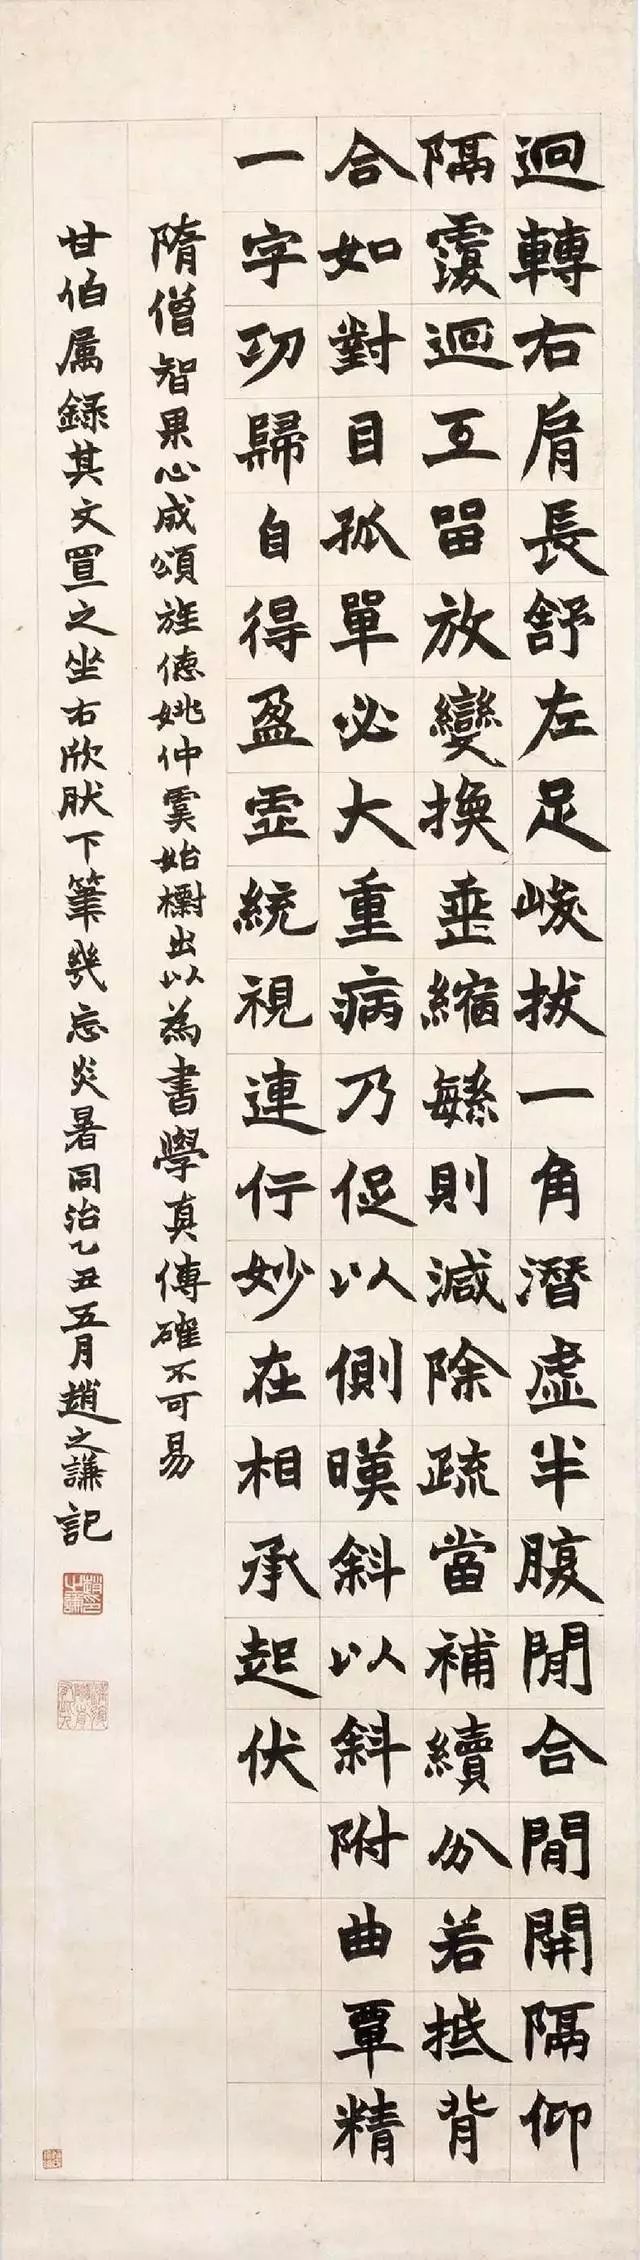 迴轉右肩長舒左足峻拔一角潛虛半腹閒合閒開隔仰
隔覆迴互留放變換垂縮繁則減除疏當補續分若抵背
合如對目孤單必大重病乃促以側暎斜以斜附曲覃精
一字功歸自得盈虛統視連行妙在相承起伏
隋僧智果心成頌旌德姚仲虞始櫥出以為書學真傳確不可易
甘伯属錄其文置之坐右欣肰下筆幾忘炎暑同治乙丑五月趙之謙記